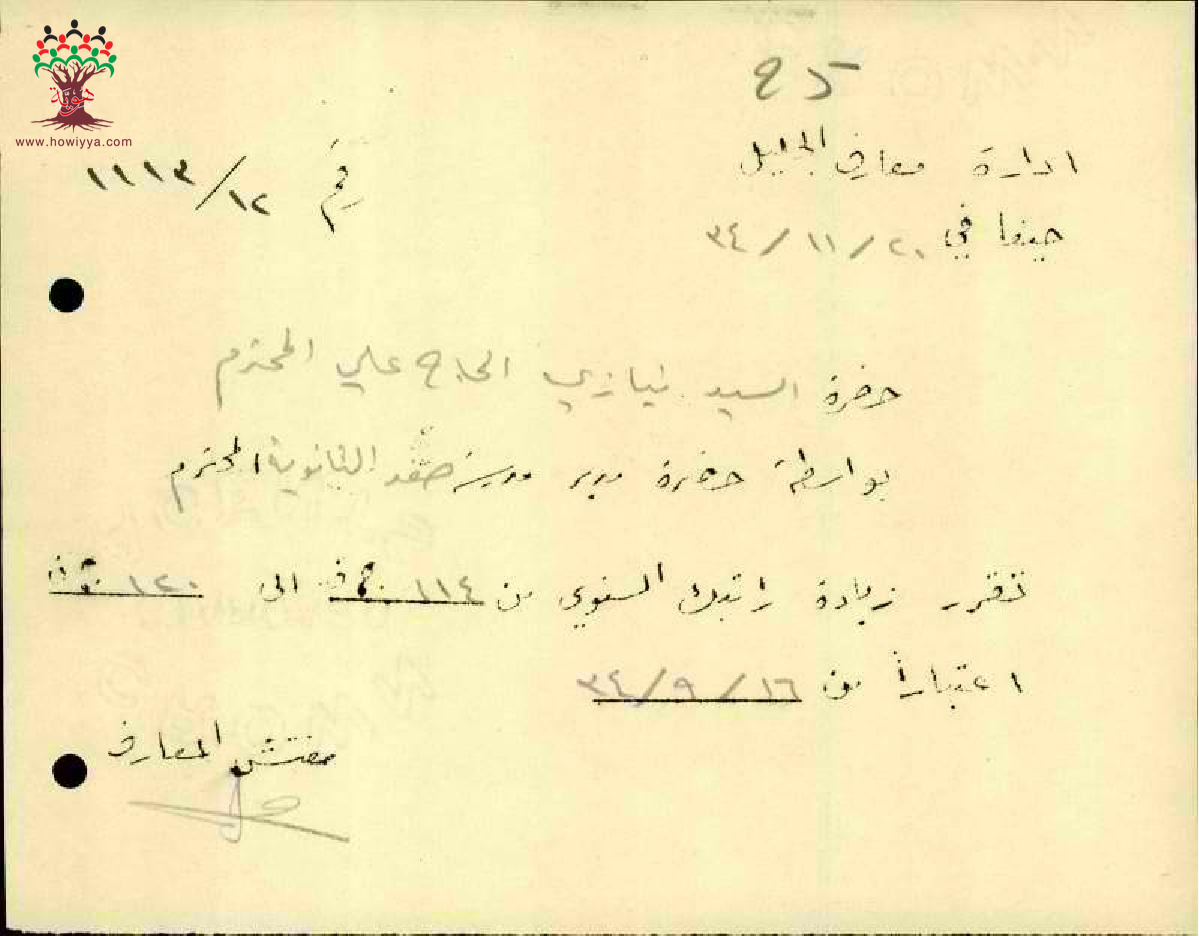 هوية
www.howiyya.com
ادارة معارف الجليل
رقم ١٢/١١١٣
حيفا في ٢٠/١١/٣٤
حضرة السيد نيازي الحاج علي المحترم
بواسطة حضرة مدير مدرسة صفد الثانوية المحترم
تقرر زيادة راتبك السنوي من ١١٤ الى ١٢٠
اعتباراً من ١٦/٩/٣٤
مفتش المعارف